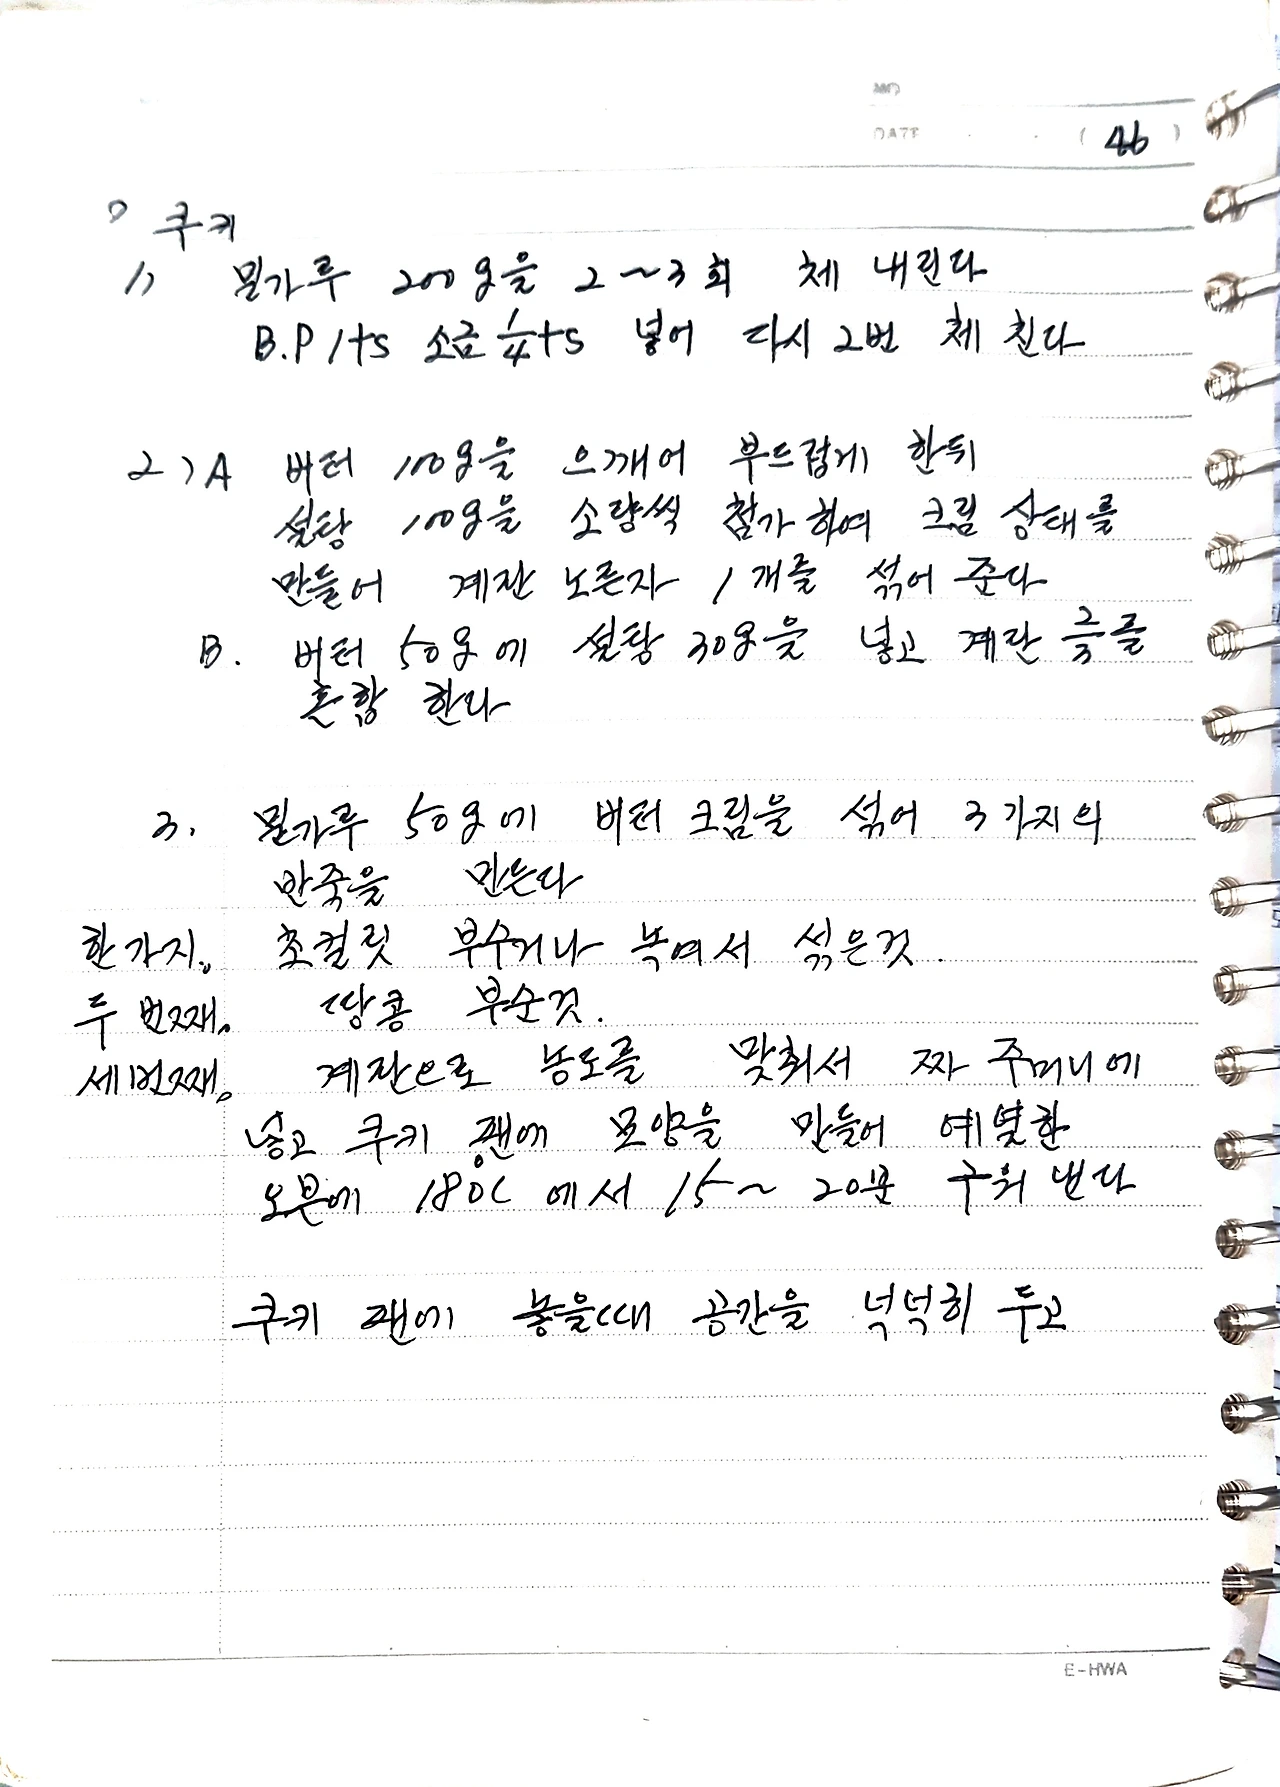 NO
DATE . . ( 46 )
쿠키
1) 밀가루 200g을 2~3회 체 내린다
B.P 1ts 소금 1/4ts 넣어 다시 2번 체 친다
2) A 버터 100g을 으깨어 부드럽게 한뒤
설탕 100g을 소량씩 첨가하여 크림 상태를
만들어 계란 노른자 1개를 섞어 준다
B. 버터 50g에 설탕 30g을 넣고 계란 를
혼합 한다
3. 밀가루 50g에 버터크림을 섞어 3가지의
반죽을 만든다
한가지. 초컬릿 부수거나 녹여서 섞은것.
두번째. 땅콩 부순것.
세번째. 계란으로 농도를 맞춰서 짜 주머니에
넣고 쿠키 팬에 모양을 만들어 예열한
오븐에 180C 에서 15~20분 구워 낸다
쿠키 팬에 놓을때 공간을 넉넉히 두고
E-HWA